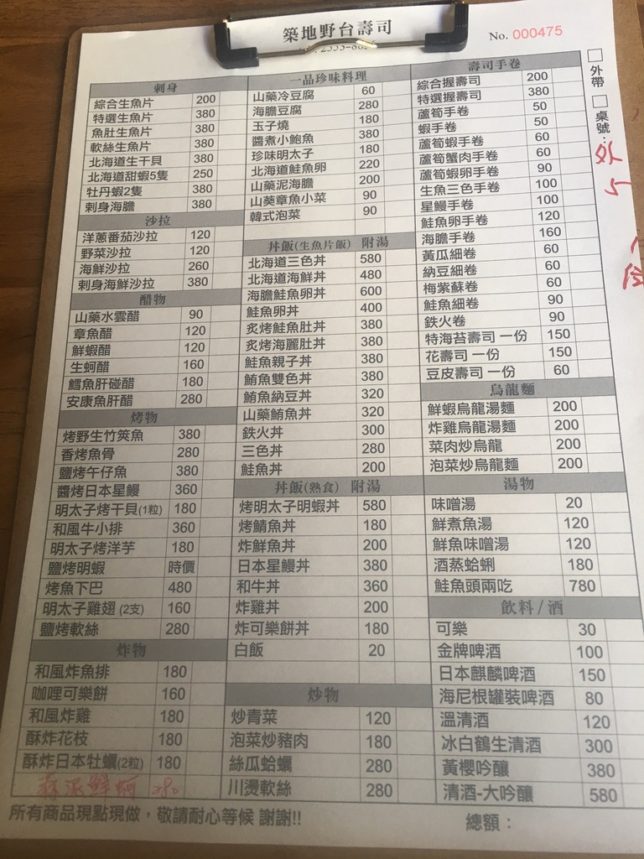 築地野台壽司
No. 000475
外帶
桌號:
外
5
刺身
綜合生魚片 200
特選生魚片 380
魚肚生魚片 380
軟絲生魚片 380
北海道生干貝 380
北海道甜蝦5隻 250
牡丹蝦2隻 380
刺身海膽 380
沙拉
洋蔥番茄沙拉 120
野菜沙拉 120
海鮮沙拉 260
刺身海鮮沙拉 380
醋物
山藥水雲醋 90
章魚醋 120
鮮蝦醋 120
生蚵醋 160
鱈魚肝碰醋 180
安康魚肝醋 280
烤物
烤野生竹筴魚 380
香烤魚骨 280
鹽烤午仔魚 380
醬烤日本星鰻 360
明太子烤干貝(1粒) 180
和風牛小排 360
明太子烤洋芋 180
鹽烤明蝦 時價
烤魚下巴 480
明太子雞翅(2支) 160
鹽烤軟絲 280
炸物
和風炸魚排 180
咖哩可樂餅 160
和風炸雞 180
酥炸花枝 180
酥炸日本牡蠣(2粒) 180
一品珍味料理
山藥冷豆腐 60
海膽豆腐 280
玉子燒 180
醬煮小鮑魚 380
珍味明太子 180
北海道鮭魚卵 220
山藥泥海膽 200
山葵章魚小菜 90
韓式泡菜 90
丼飯(生魚片飯) 附湯
北海道三色丼 580
北海道海鮮丼 480
海膽鮭魚卵丼 600
鮭魚卵丼 400
炙烤鮭魚肚丼 380
炙烤海麗肚丼 380
鮭魚親子丼 380
鮪魚雙色丼 380
鮪魚納豆丼 320
山藥鮪魚丼 320
鐵火丼 300
三色丼 280
鮭魚丼 200
丼飯(熟食) 附湯
烤明太子明蝦丼 580
烤鯖魚丼 180
炸鮮魚丼 200
日本星鰻丼 380
和牛丼 360
炸雞丼 200
炸可樂餅丼 180
白飯 20
炒物
炒青菜 120
泡菜炒豬肉 180
絲瓜蛤蠣 280
川燙軟絲 280
壽司手卷
綜合握壽司 200
特選握壽司 380
蘆筍手卷 50
蝦手卷 50
蘆筍蝦手卷 60
蘆筍蟹肉手卷 60
蘆筍蝦卵手卷 90
生魚三色手卷 100
星鰻手卷 100
鮭魚卵手卷 120
海膽手卷 160
黃瓜細卷 60
納豆細卷 60
梅紫蘇卷 60
鮭魚細卷 90
鐵火卷 90
特海苔壽司 一份 150
花壽司 一份 150
豆皮壽司 一份 60
烏龍麵
鮮蝦烏龍湯麵 200
炸雞烏龍湯麵 200
菜肉炒烏龍 200
泡菜炒烏龍麵 200
湯物
味噌湯 20
鮮煮魚湯 120
鮮魚味噌湯 120
酒蒸蛤蜊 180
鮭魚頭兩吃 780
飲料/酒
可樂 30
金牌啤酒 100
日本麒麟啤酒 150
海尼根罐裝啤酒 80
溫清酒 120
冰白鶴生清酒 300
黃櫻吟釀 380
清酒-大吟釀 580
所有商品現點現做，敬請耐心等候 謝謝!!
總額：